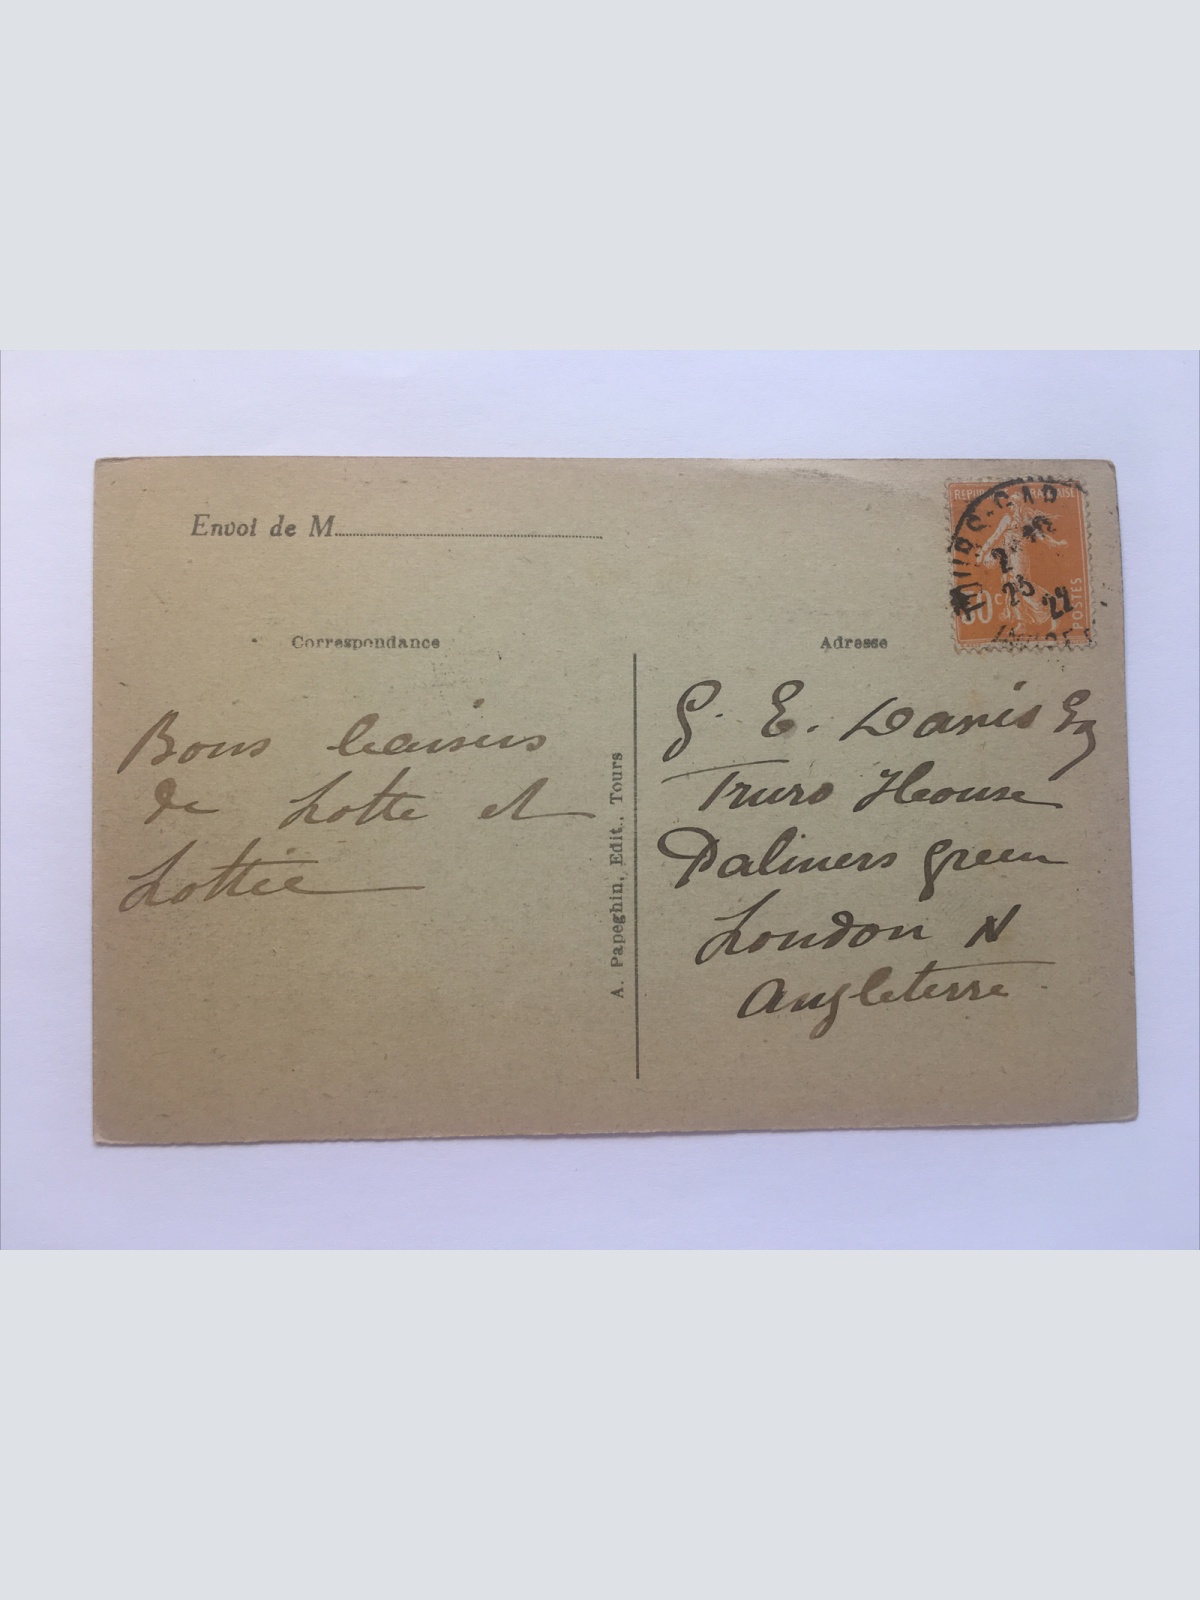 Envoi de M
Correspondance
Bons baisers
de Lotte et
Lottie
A. Papeghin, Edit., Tours
REPUBLIQUE FRANCAISE
POSTES
TOURS-GARE
25
22
INDRE
Adresse
G. E. Davis Esq
Truro House
Palmers Green
London N
Angleterre